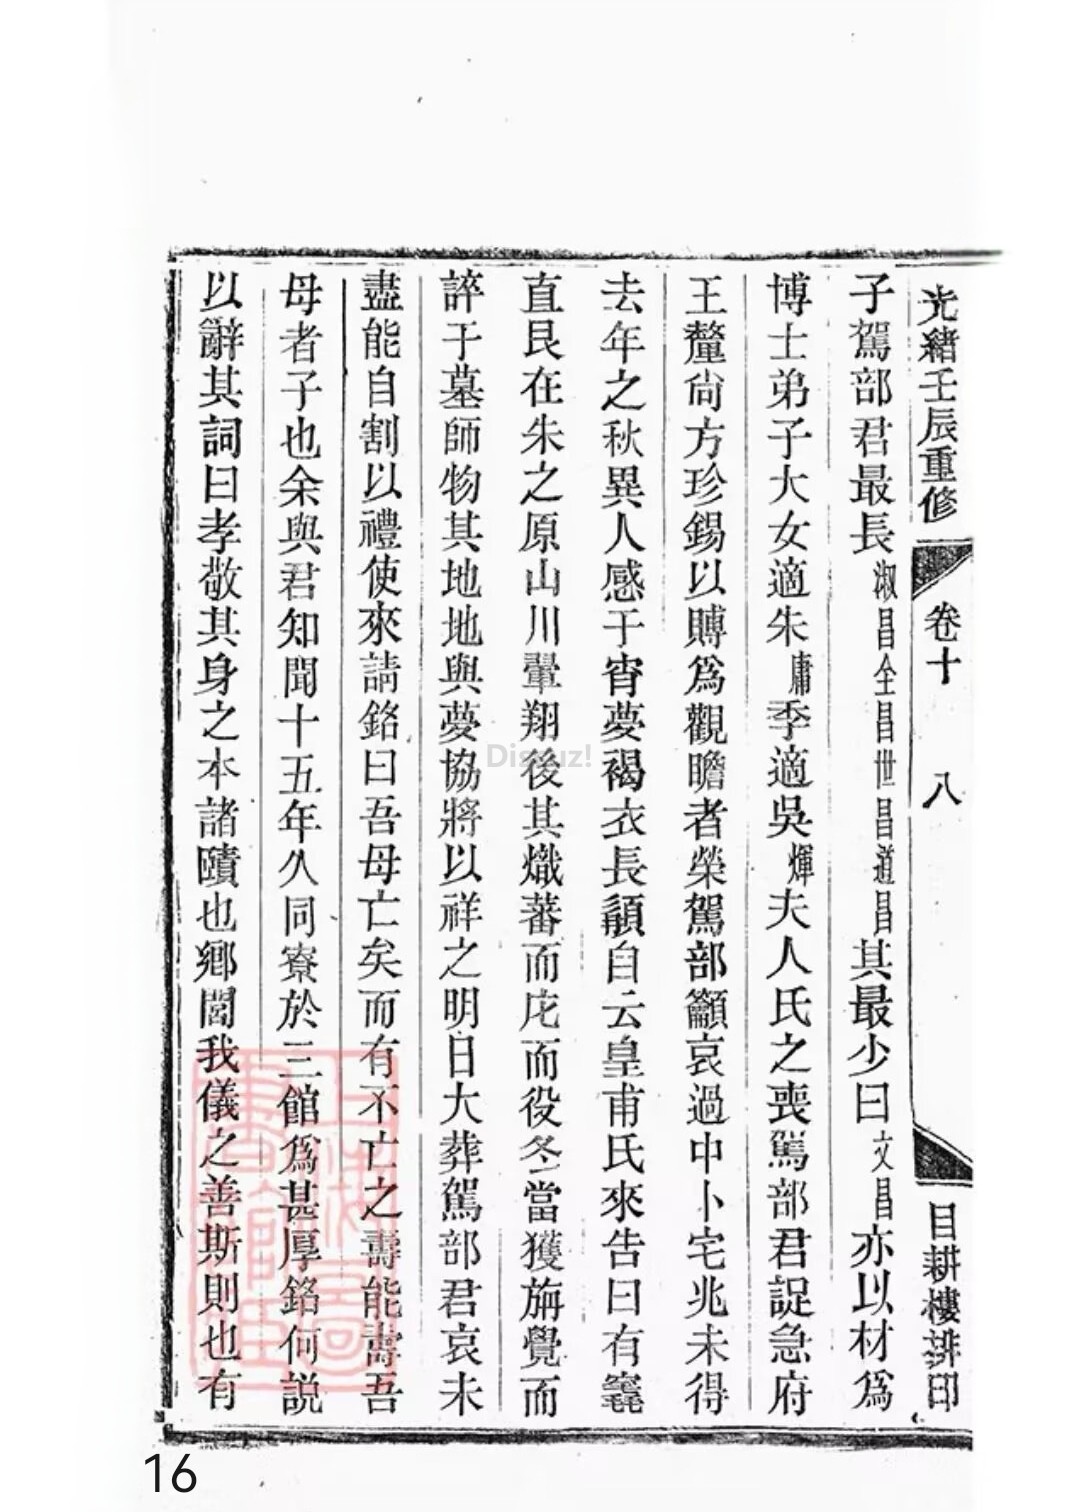 光緒壬辰重修 卷十 八 目耕樓排印
子駕部君最長淑昌全昌世昌道昌其最少曰文昌亦以材爲
博士弟子大女適朱庸季適吳煇夫人氏之喪駕部君諟急府
王釐尙方珍錫以賻爲觀瞻者榮駕部籲哀過中卜宅兆未得
去年之秋異人感于宵夢褐衣長顜自云皇甫氏來告曰有窀
直艮在朱之原山川翬翔後其熾蕃而庀而役冬當獲旃覺而
誶于墓師物其地地與夢協將以祥之明日大葬駕部君哀未
盡能自割以禮使來請銘曰吾母亡矣而有不亡之壽能壽吾
母者子也余與君知聞十五年久同寮於三館爲甚厚銘何説
以辭其詞曰孝敬其身之本諸賾也鄉閭我儀之善斯則也有
Discuz!
16